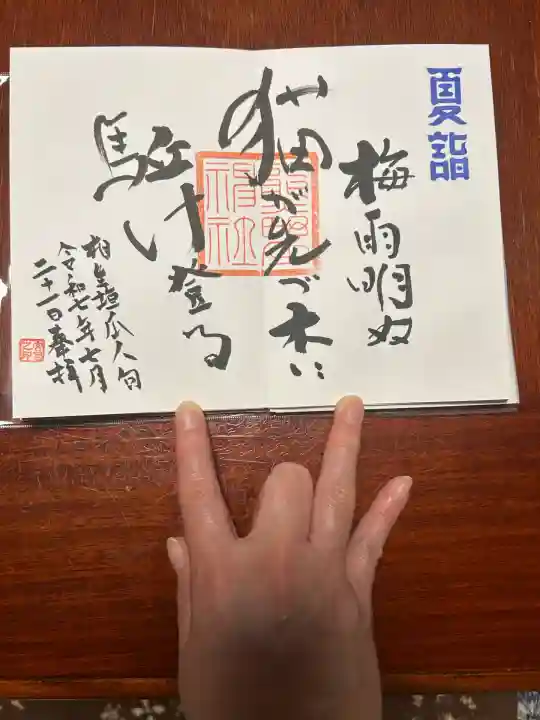 夏詣
梅雨明ぬ
猫が先づ木に
駈け登る
相生垣瓜人句
令和七年七月
二十一日奉拝